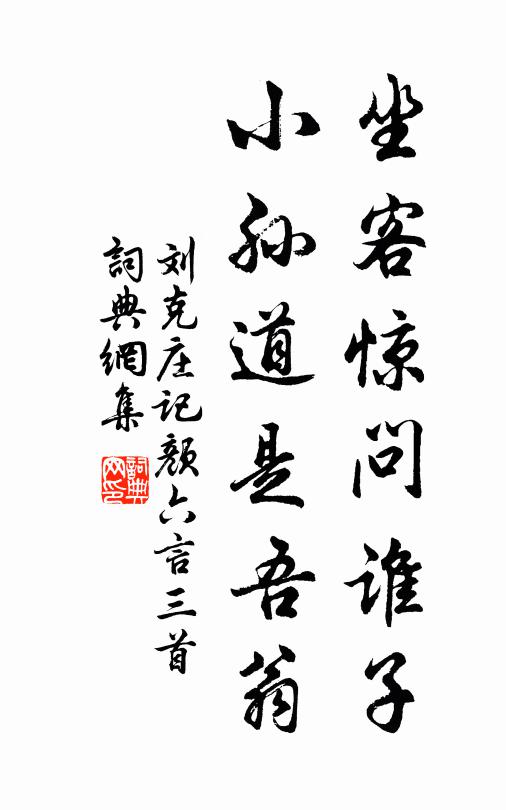 坐客惊问谁子
小孙道是吾翁
刘克庄记颜六言三首
詞典網集
詞典网印